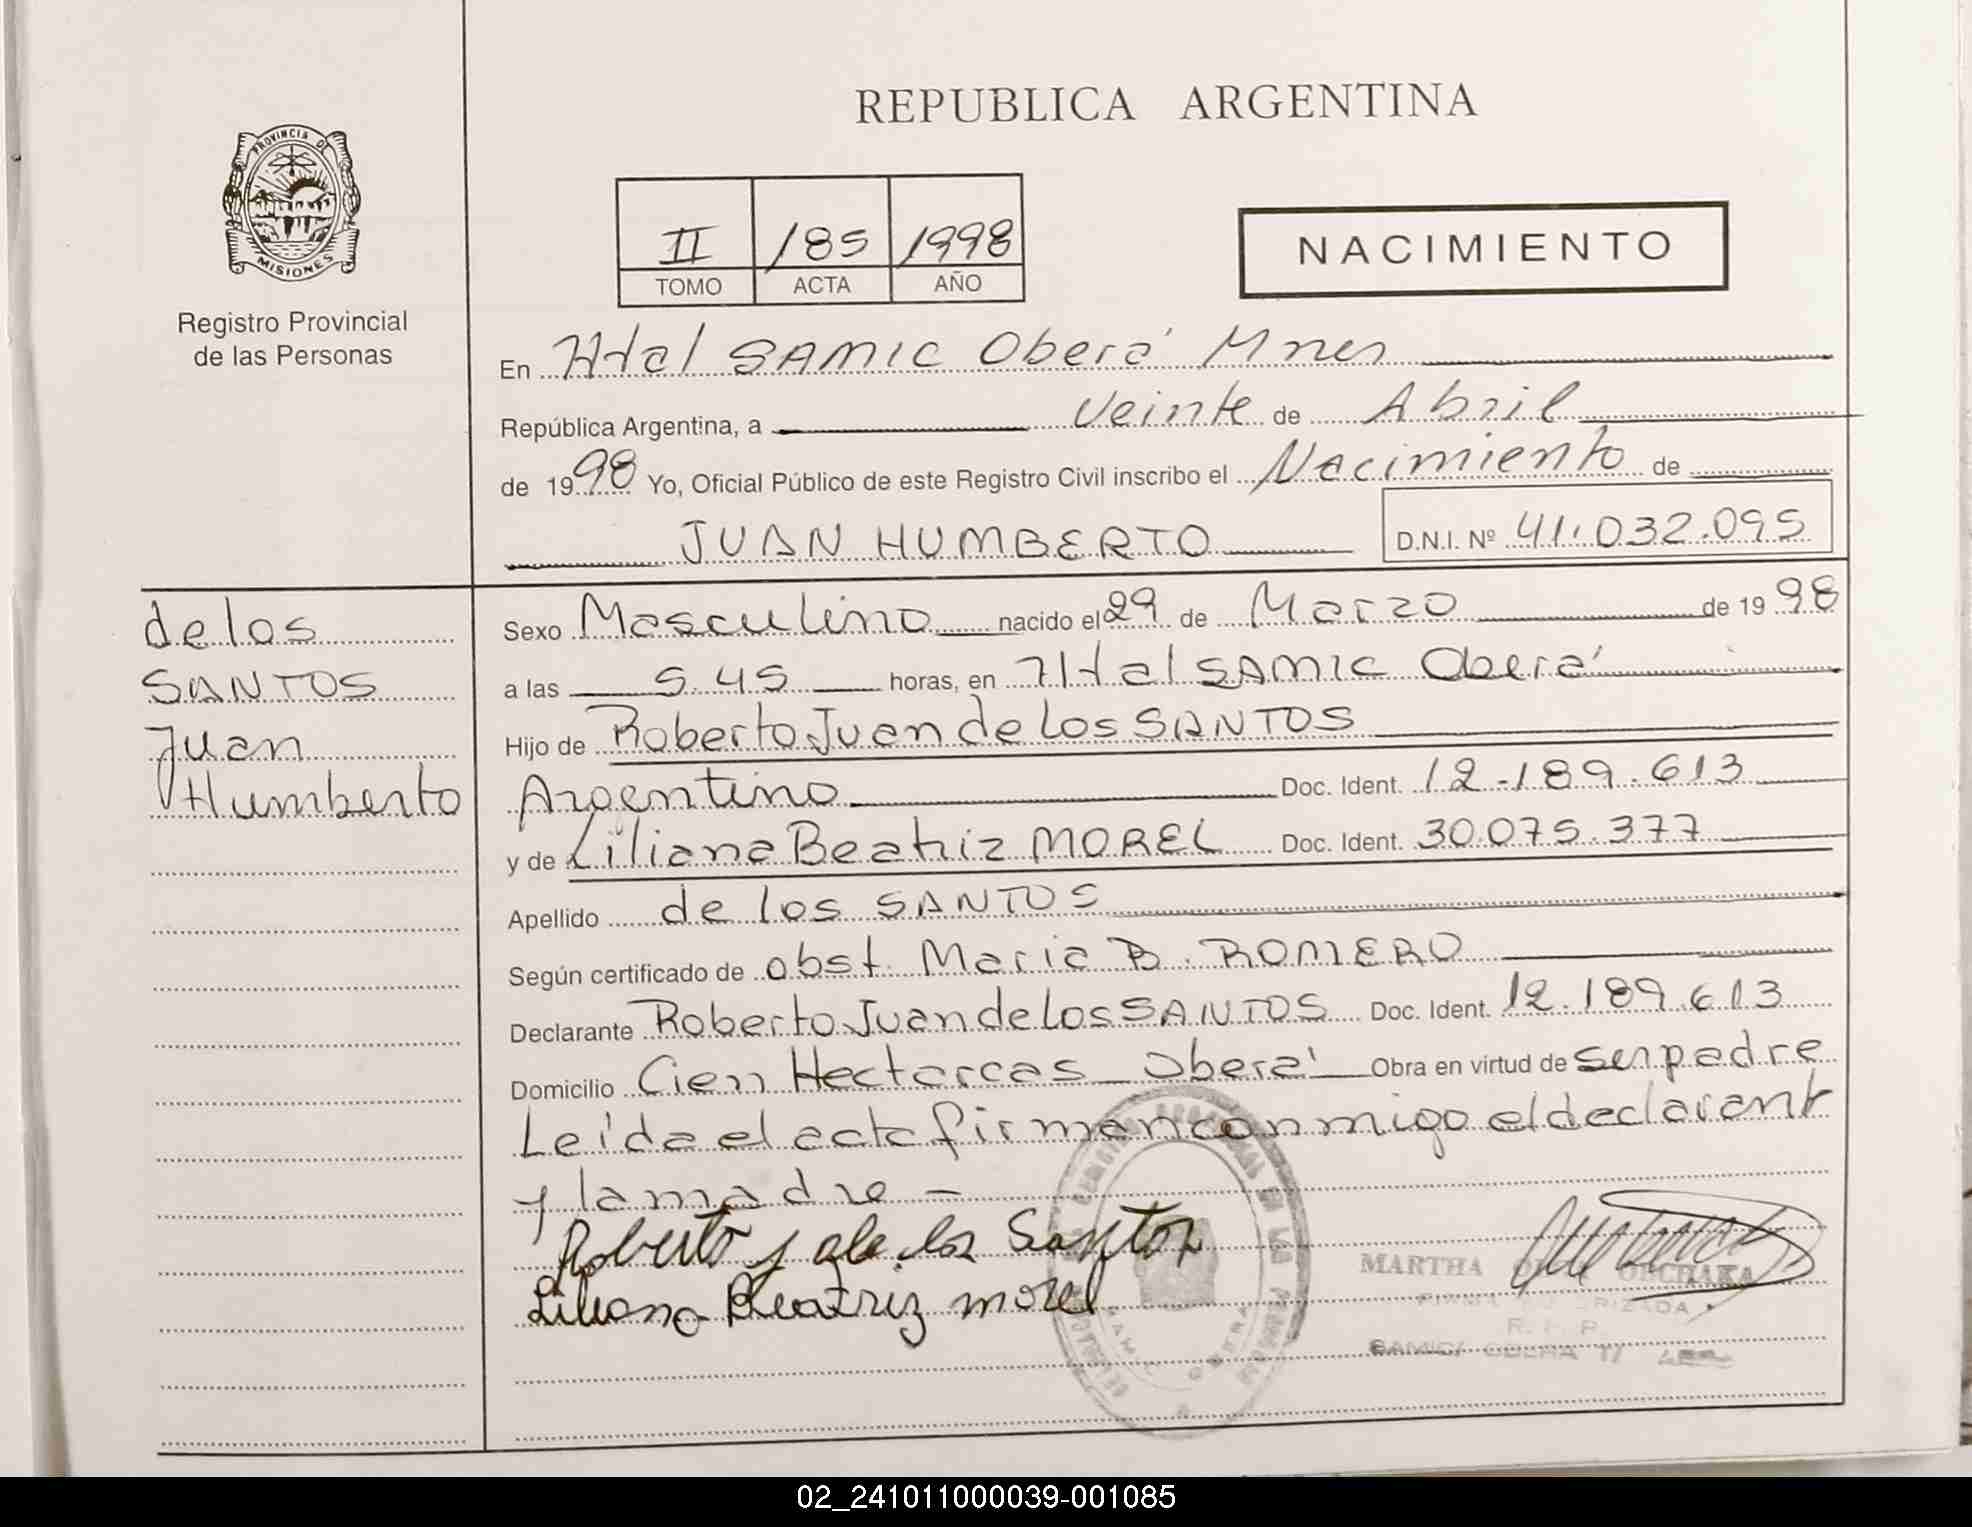 REPUBLICA ARGENTINA
PROVINCIA DE
MISIONES
Registro Provincial
de las Personas
II 185 1998
TOMO ACTA AÑO
NACIMIENTO
En Htal SAMIC Oberá Mnes
República Argentina, a Veinte de Abril
de 1998 Yo, Oficial Público de este Registro Civil inscribo el Nacimiento de
JUAN HUMBERTO D.N.I. Nº 41.032.095
de los
SANTOS
Juan
Humberto
Sexo Masculino nacido el 29 de Marzo de 1998
a las 5.45 horas, en Htal SAMIC Oberá
Hijo de Roberto Juan de los SANTOS
Argentino Doc. Ident. 12.189.613
y de Liliana Beatriz MOREL Doc. Ident. 30.075.377
Apellido de los SANTOS
Según certificado de obst. Maria B. ROMERO
Declarante Roberto Juan de los SANTOS Doc. Ident. 12.189.613
Domicilio Cien Hectareas Oberá Obra en virtud de ser padre
Leída el acta firman conmigo el declarant
y la madre -
Roberto J de los Santos
Liliana Beatriz morel
MARTHA
FIRMA AUTORIZADA
R. P. P.
02_241011000039-001085